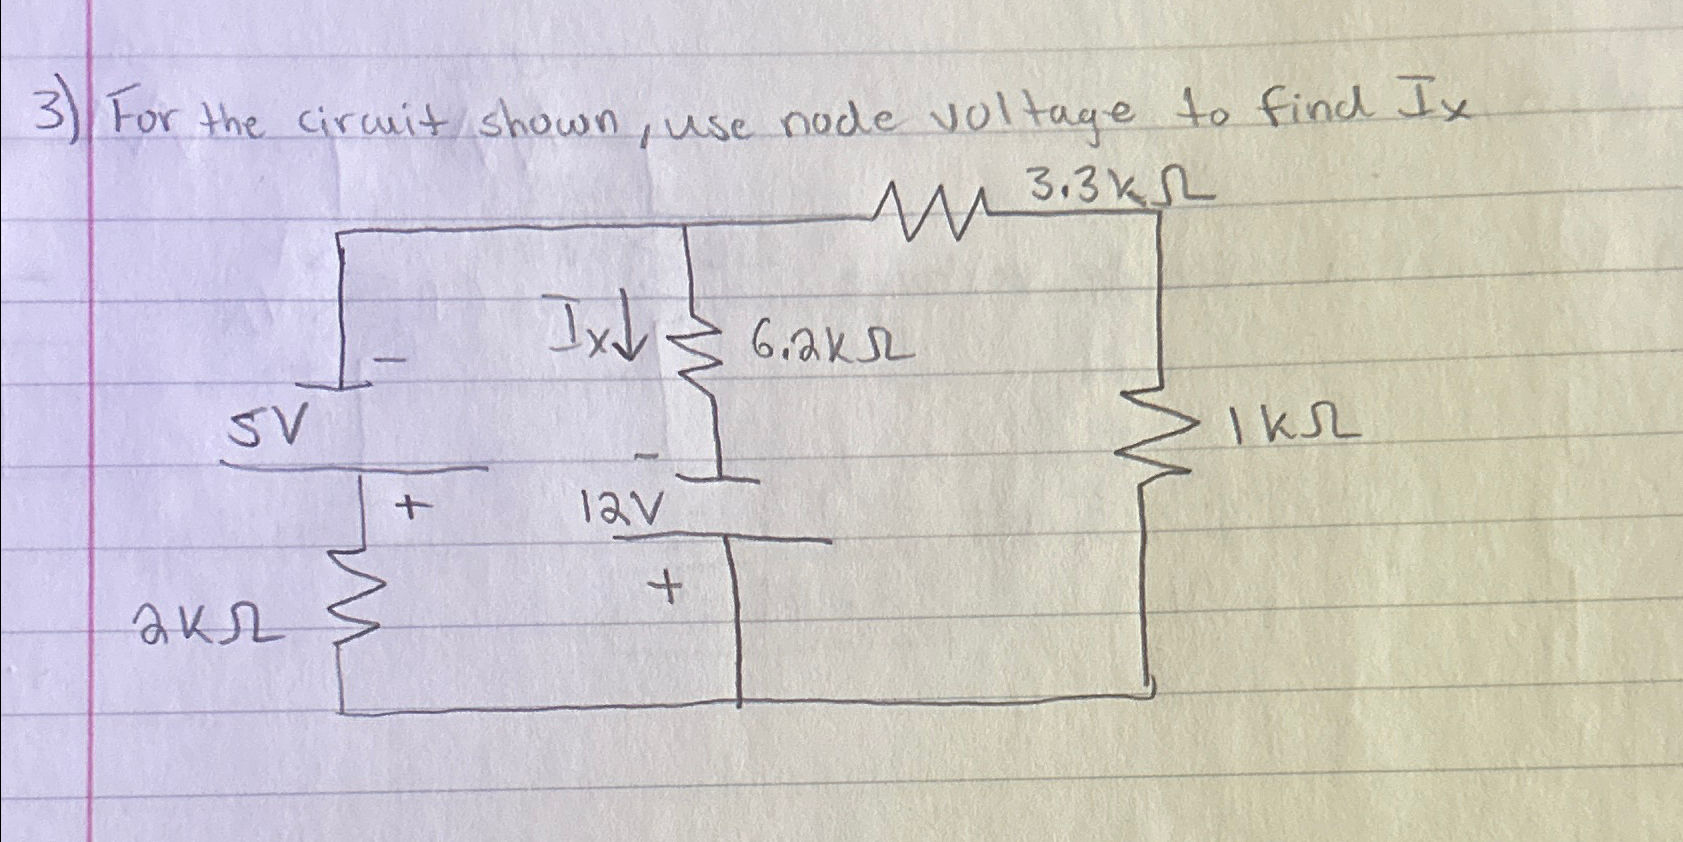 3) For the circuit shown, use node voltage to find Ix
3.3kΩ
Ix↓
6.2kΩ
-
5V
1kΩ
-
+
12V
+
2kΩ